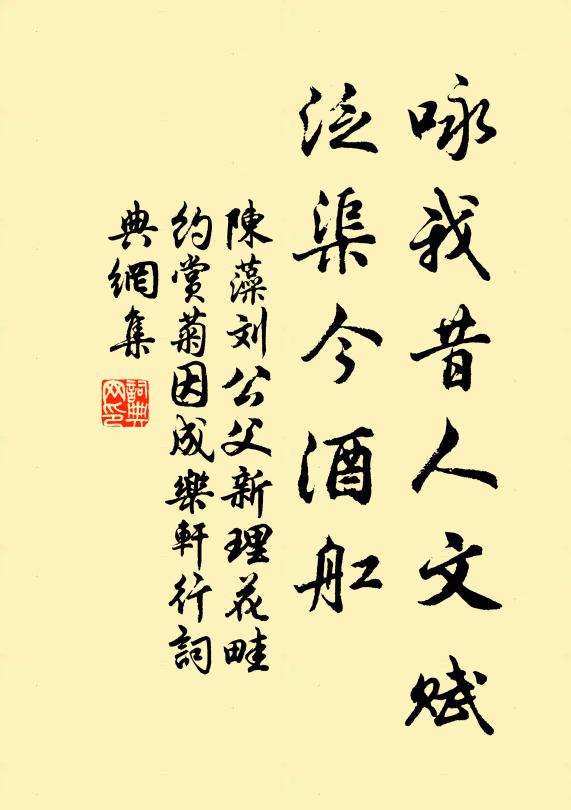 咏我昔人文赋
泛渠今酒舡
陳藻刘公父新理花畦
约賞菊因成樂軒行詞
典網集
詞典
网印